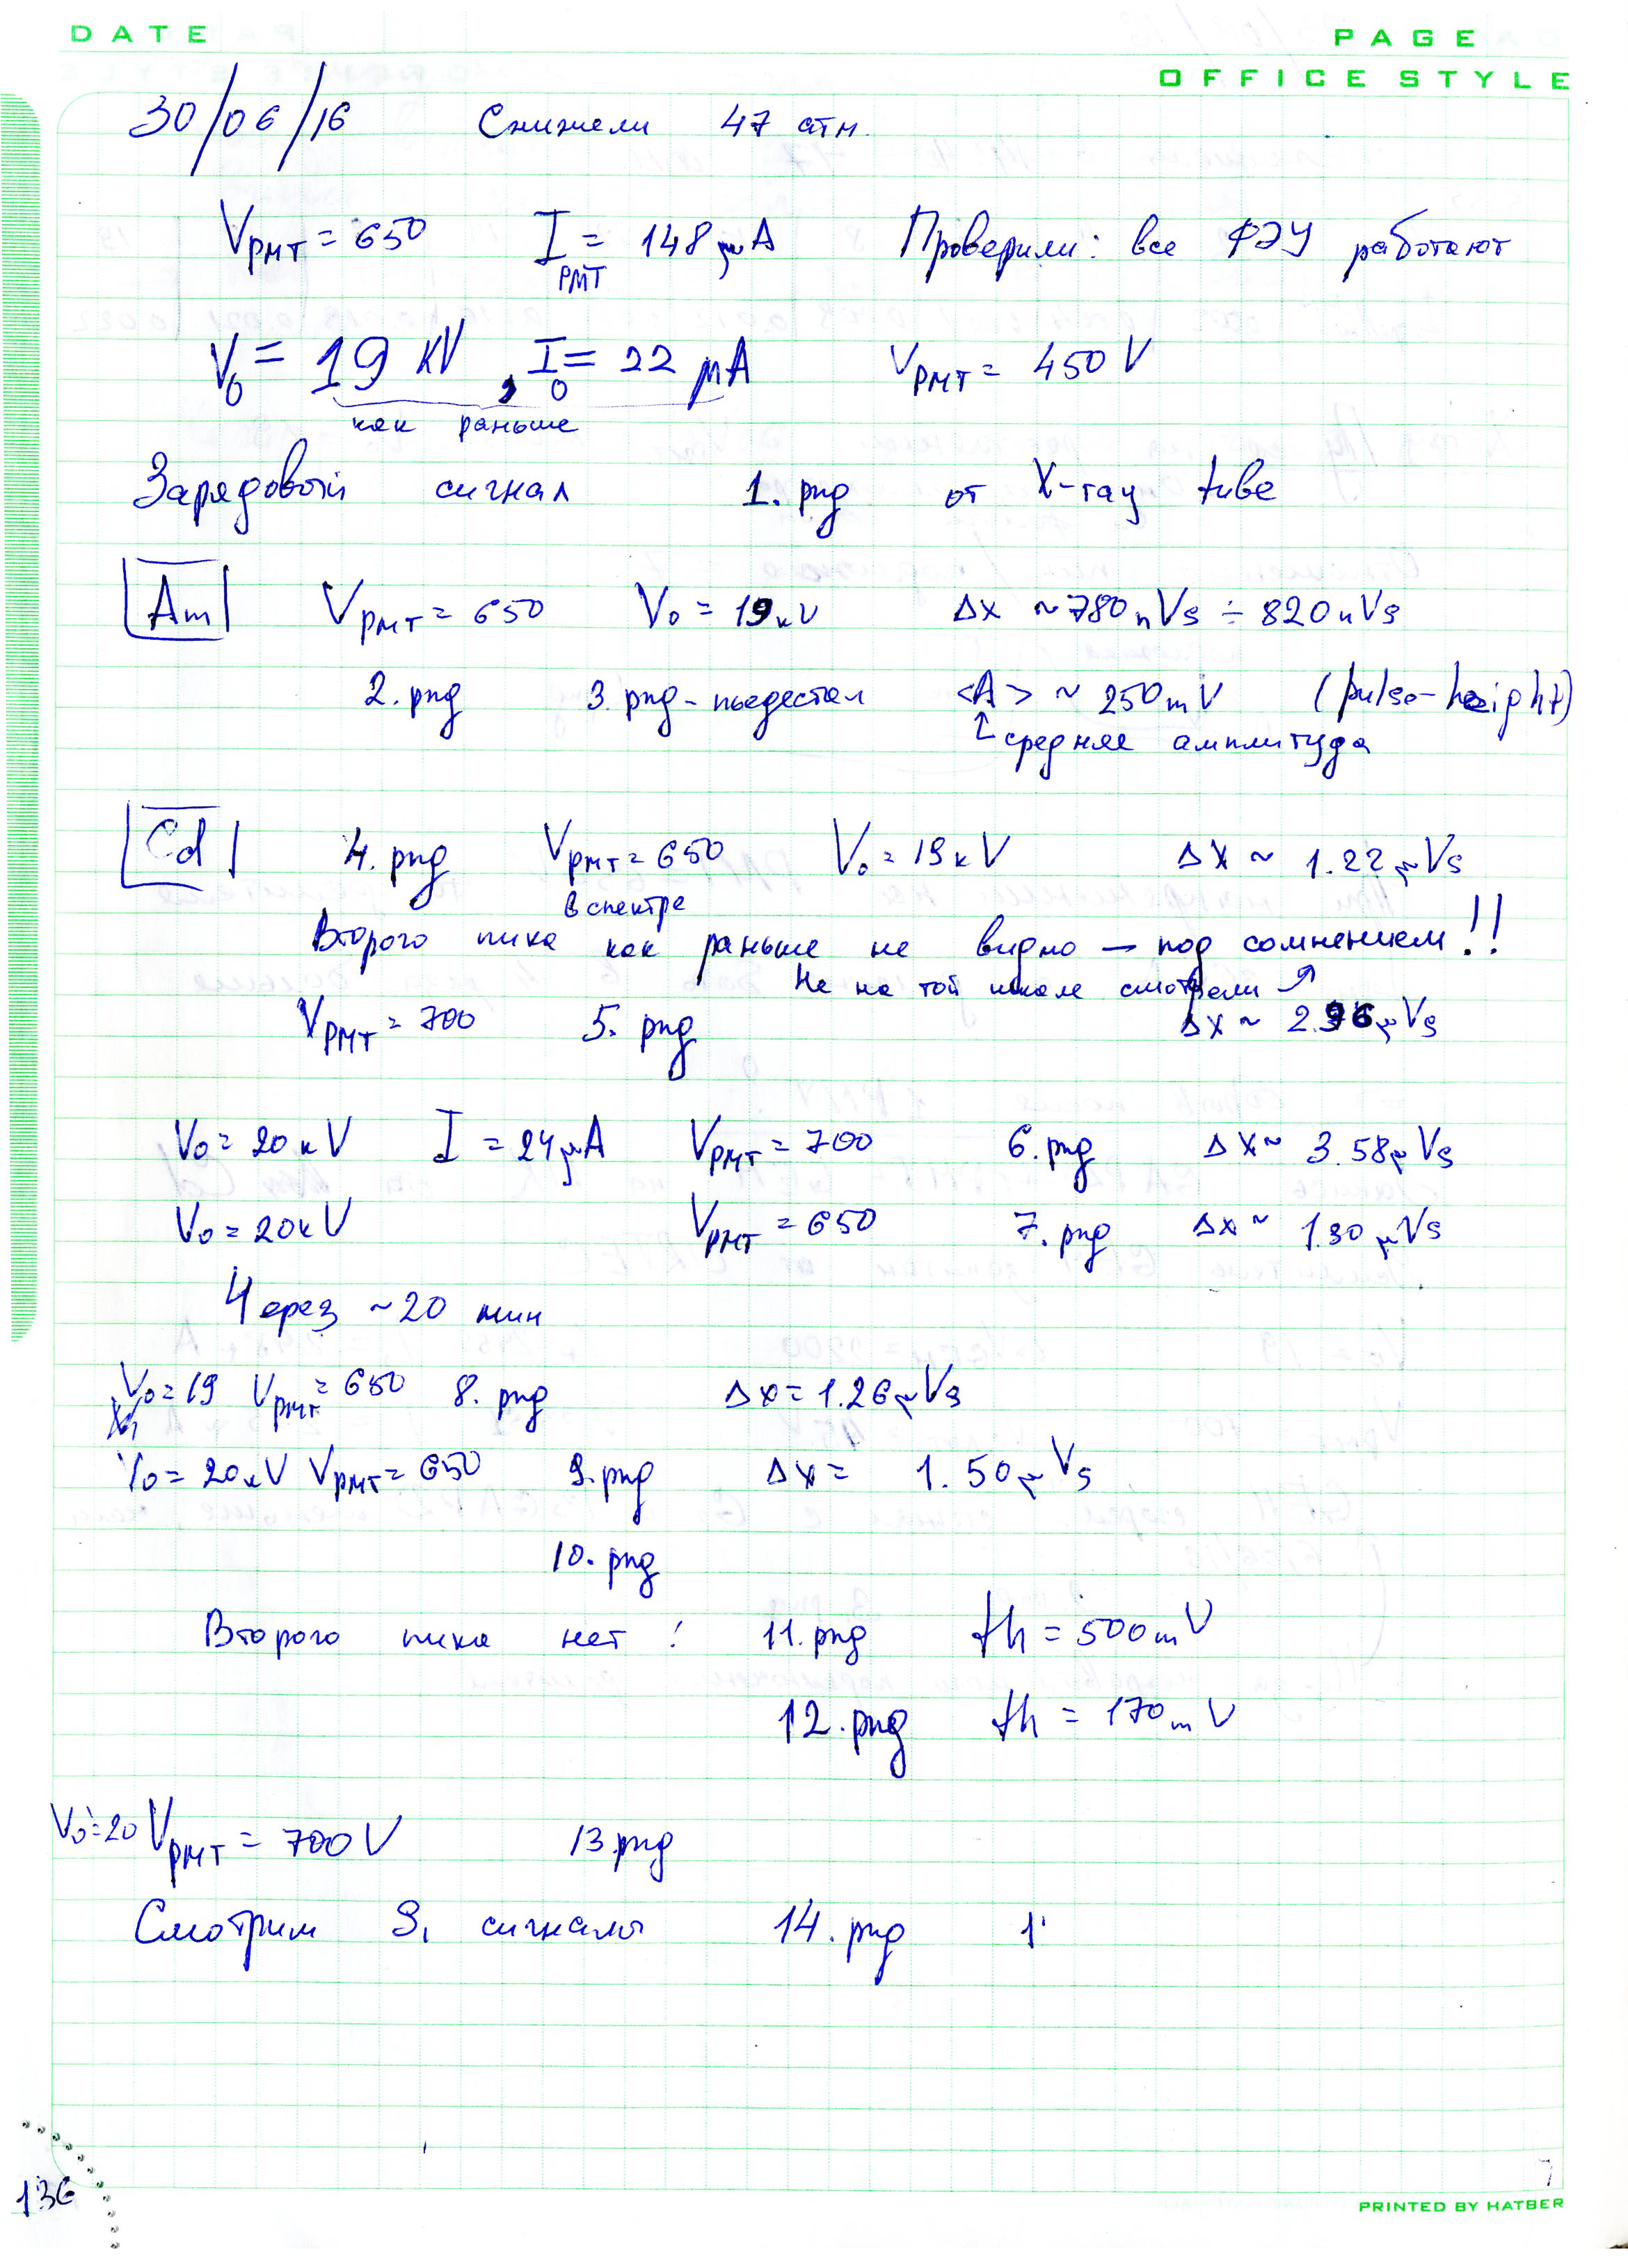 DATE
PAGE
OFFICE STYLE
30/06/16 Снижели 47 атм.
V_PMT = 650 I_PMT = 148 μA Проверили: все ФЭУ работают
V_0 = 19 kV, I_0 = 22 μA V_PMT = 450 V
как раньше
Зарядовый сигнал 1.png от X-ray tube
Am V_PMT = 650 V_0 = 19 kV Δx ~ 780 nVs ÷ 820 nVs
2.png 3.png - пьедестал <A> ~ 250 mV (pulse-height)
↑ средняя амплитуда
Cd 4.png V_PMT = 650 V_0 = 19 kV ΔX ~ 1.22 μVs
в спектре
Второго пика как раньше не видно → под сомнением!!
Не на той шкале смотрели ↗
V_PMT = 700 5.png Δx ~ 2.96 μVs
V_0 = 20 kV I = 24 μA V_PMT = 700 6.png Δx ~ 3.58 μVs
V_0 = 20 kV V_PMT = 650 7.png Δx ~ 1.30 μVs
Через ~20 мин
V_0 = 19 V_PMT = 650 8.png Δx = 1.26 μVs
V_0 = 20 kV V_PMT = 650 9.png Δx = 1.50 μVs
10.png
Второго пика нет! 11.png th = 500 mV
12.png th = 170 mV
V_0 = 20 V_PMT = 700 V 13.png
Смотрим S_1 сигналы 14.png 1
136
7
PRINTED BY HATBER